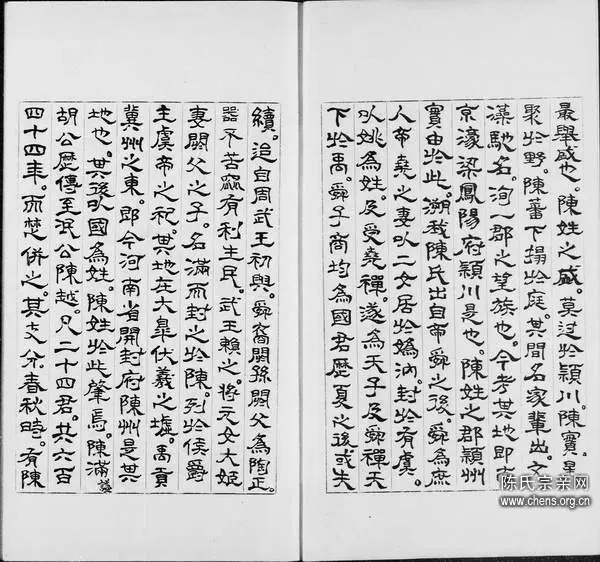 最舉盛也。陳姓之盛。莫过於潁川。陳寔。星
聚於野。陳蕃下榻於庭。其間名家輩出。文
藻馳名。洵一郡之望族也。今考其地即
京濠梁鳳陽府潁川是也。陳姓之郡潁州
實由於此。溯我陳氏出自帝舜之後。舜為庶
人帝堯之妻以二女居於媯汭。封於有虞。
以姚為姓。及受堯禪。遂為天子及舜禪天
下於禹。舜子商均為國君歷夏之後或失
續。迨自周武王初興。舜裔閼孫閼父為陶正。
器不苦窳有利生民。武王賴之。將元女大姬
妻閼父之子。名滿而封之於陳。列於侯爵
主虞帝之祀。其地在大皞伏羲之墟。禹貢
冀州之東。即今河南省開封府陳州是其
地也。其後以國為姓。陳姓於此肇焉。陳滿
胡公歷傳至泯公陳越。凡二十四君。共六百
四十四年。而楚併之。其支分。春秋時。有陳
陈氏宗亲网
www.chens.org.cn